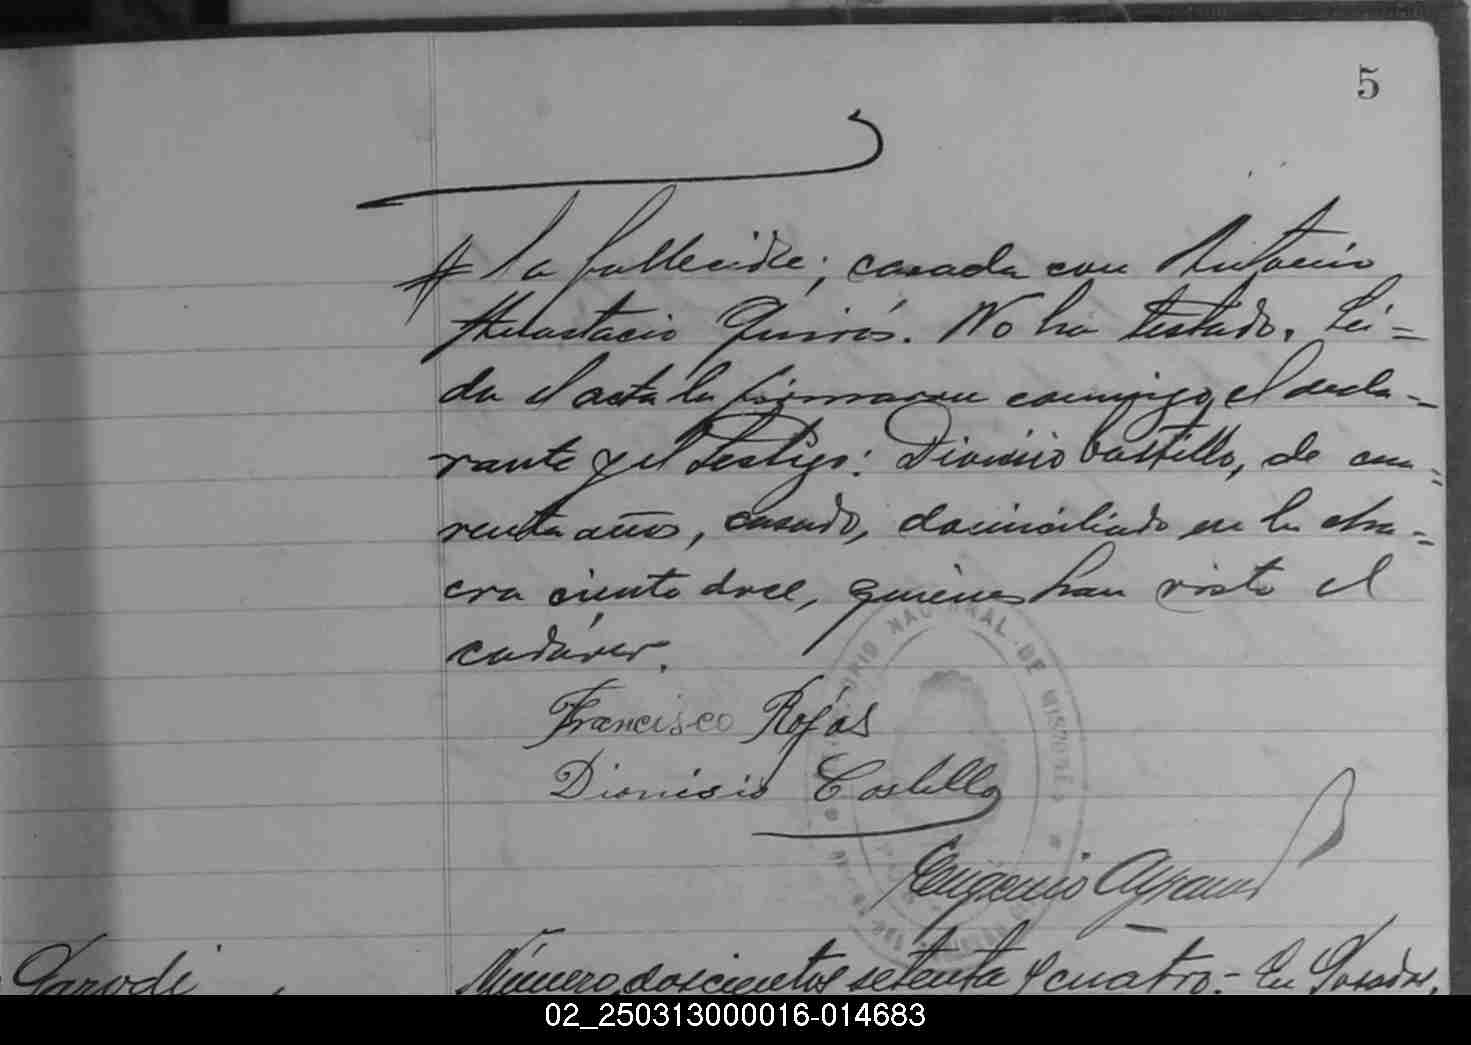 5
# la fallecida; casada con Antonio
Anastacio Quirós. No ha testado. Leí=
da el acta la firmaron conmigo, el decla-
rante y el testigo: Dionisio Castillo, de cua=
renta años, casado, domiciliado en la cha=
cra ciento doce, quienes han visto el
cadáver.
NACIONAL DE MISIONES
Francisco Rojas
Dionisio Castillo
Eugenio
Parodi
Número doscientos setenta y cuatro.- En Posadas,
02_250313000016-014683